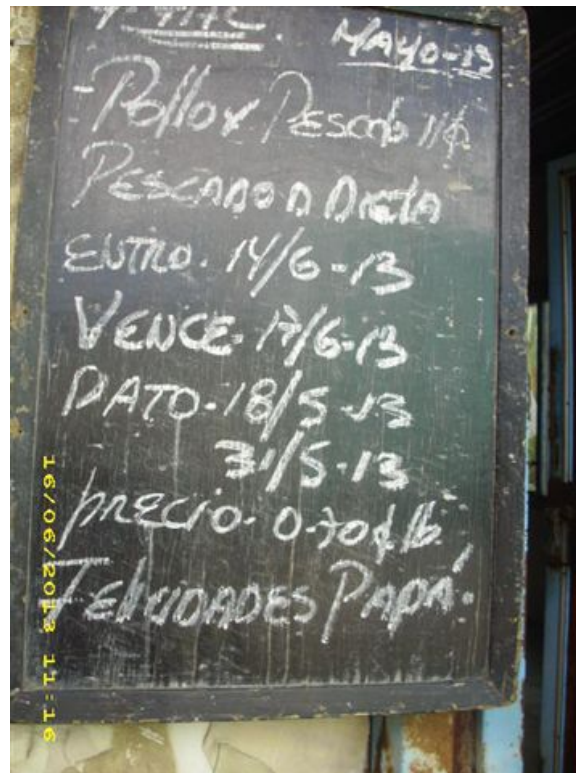 MAYO-13
-Pollo x Pescado 11₵
PESCADO D DIETA
ENTRO. 14/6-13
VENCE. 17/6-13
DATO-18/5-13
31/5-13
precio- 0-70₵ lb.
FELICIDADES PAPÁ.
16/06/2013 11:16